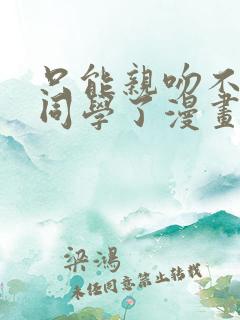 只能親吻不
同學了漫畫
梁鴻
未经同意禁止转载